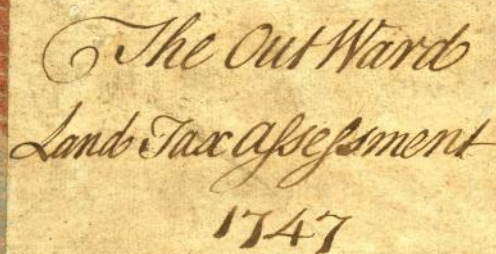 The Out Ward
Land Tax Aſseſsment
1747